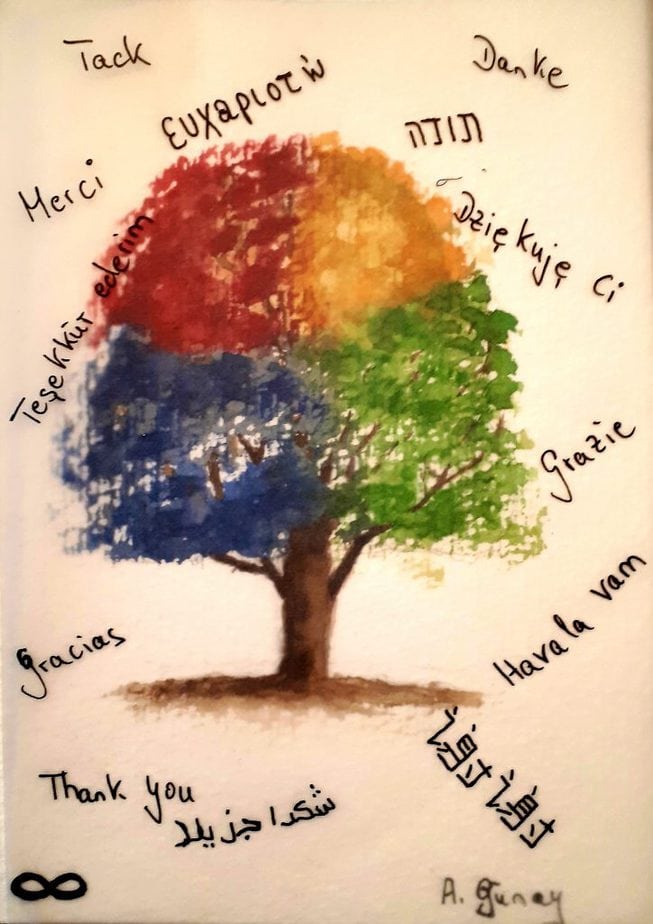 Tack
Danke
ευχαριστώ
תודה
Merci
Dziękuję Ci
Teşekkür ederim
Grazie
Havala vam
Gracias
谢谢
Thank you
شكرا جزيلا
A. Gunay